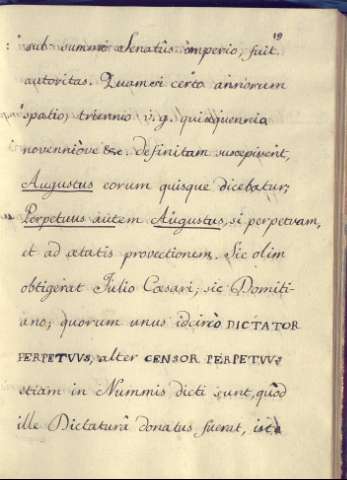 19
sub summo Senatûs imperio, fuit
autoritas. Quam si certo annorum
spatio, triennio v. g. quinquennio
novenniòve &c. definitam suscepissent,
Augustus eorum quisque dicebatur;
Perpetuus autem Augustus, si perpetuam,
et ad ætatis provectionem. Sic olim
obtigerat Julio Cæsari; sic Domiti-
ano; quorum unus idcircò DICTATOR
PERPETVVS, alter CENSOR PERPETVVS
etiam in Nummis dicti sunt, quòd
ille Dictaturâ donatus fuerat, iste